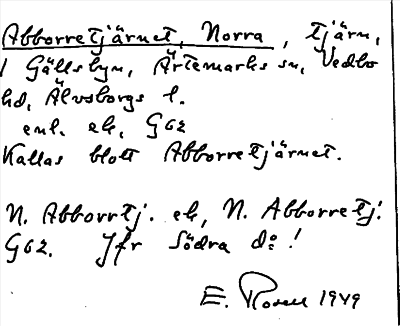 Abborretjärnet, Norra, tjärn,
i Gällsbyn, Ärtemarks sn, Vedbo
hd, Älvsborgs l.
enl. ek, G62
Kallas blott Abborretjärnet.
N. Abborrtj. ek, N. Abborretj.
G62. Jfr Södra do!
E. Rosell 1949